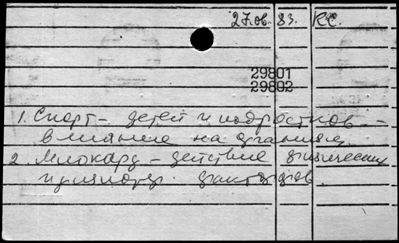 27.06.83. КС.
29801
29802
1. Спорт - детей и подростков -
влияние на организм.
2. Миокард - действие физических
факторов.